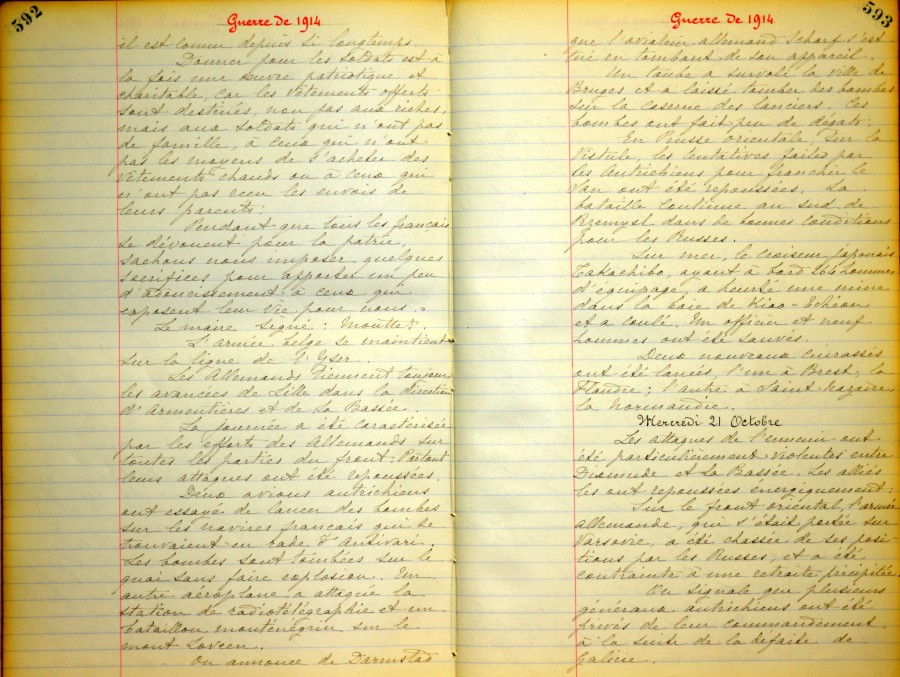 592
Guerre de 1914
il est connu depuis si longtemps.
Donner pour les soldats est à
la fois une œuvre patriotique et
charitable, car les vêtements offerts
sont destinés, non pas aux riches,
mais aux soldats qui n'ont pas
de famille, à ceux qui n'ont
pas les moyens de s'acheter des
vêtements chauds ou à ceux qui
n'ont pas reçu les envois de
leurs parents.
Pendant que tous les français
se dévouent pour la patrie,
sachons nous imposer quelques
sacrifices pour apporter un peu
d'adoucissement à ceux qui
exposent leur vie pour nous. »
Le maire Signé : Mouttet.
L'armée belge se maintient
sur la ligne de l'Yser.
Les Allemands tiennent toujours
les avancées de Lille dans la direction
d'Armentières et de La Bassée.
La journée a été caractérisée
par les efforts des Allemands sur
toutes les parties du front ; Partout
leurs attaques ont été repoussées.
Deux avions autrichiens
ont essayé de lancer des bombes
sur les navires français qui se
trouvaient en rade d'Antivari.
Les bombes sont tombées sur le
quai sans faire explosion. Un
autre aéroplane a attaqué la
station de radiotélégraphie et un
bataillon monténégrin sur le
mont Lovcen.
On annonce de Darmstad
593
Guerre de 1914
que l'aviateur allemand Scharf s'est
tué en tombant de son appareil.
Un taube a survolé la ville de
Bruges et a laissé tomber des bombes
sur la caserne des lanciers. Ces
bombes ont fait peu de dégâts.
En Prusse orientale, sur la
Vistule, les tentatives faites par
les Autrichiens pour franchir le
San ont été repoussées. La
bataille continue au sud de
Przemysl dans de bonnes conditions
pour les Russes.
Sur mer, le croiseur japonais
Takachibo, ayant à bord 264 hommes
d'équipage, a heurté une mine
dans la baie de Kiao-Tchéou
et a coulé. Un officier et neuf
hommes ont été sauvés.
Deux nouveaux cuirassés
ont été lancés, l'un à Brest, la
Flandre ; l'autre à Saint-Nazaire
la Normandie.
Mercredi 21 Octobre
Les attaques de l'ennemi ont
été particulièrement violentes entre
Dixmude et La Bassée. Les alliés
les ont repoussées énergiquement.
Sur le front oriental, l'armée
allemande, qui s'était portée sur
Varsovie, a été chassée de ses posi-
tions par les Russes, et a été
contrainte à une retraite précipitée.
On signale que plusieurs
généraux autrichiens ont été
privés de leur commandement
à la suite de la défaite de
Galicie.